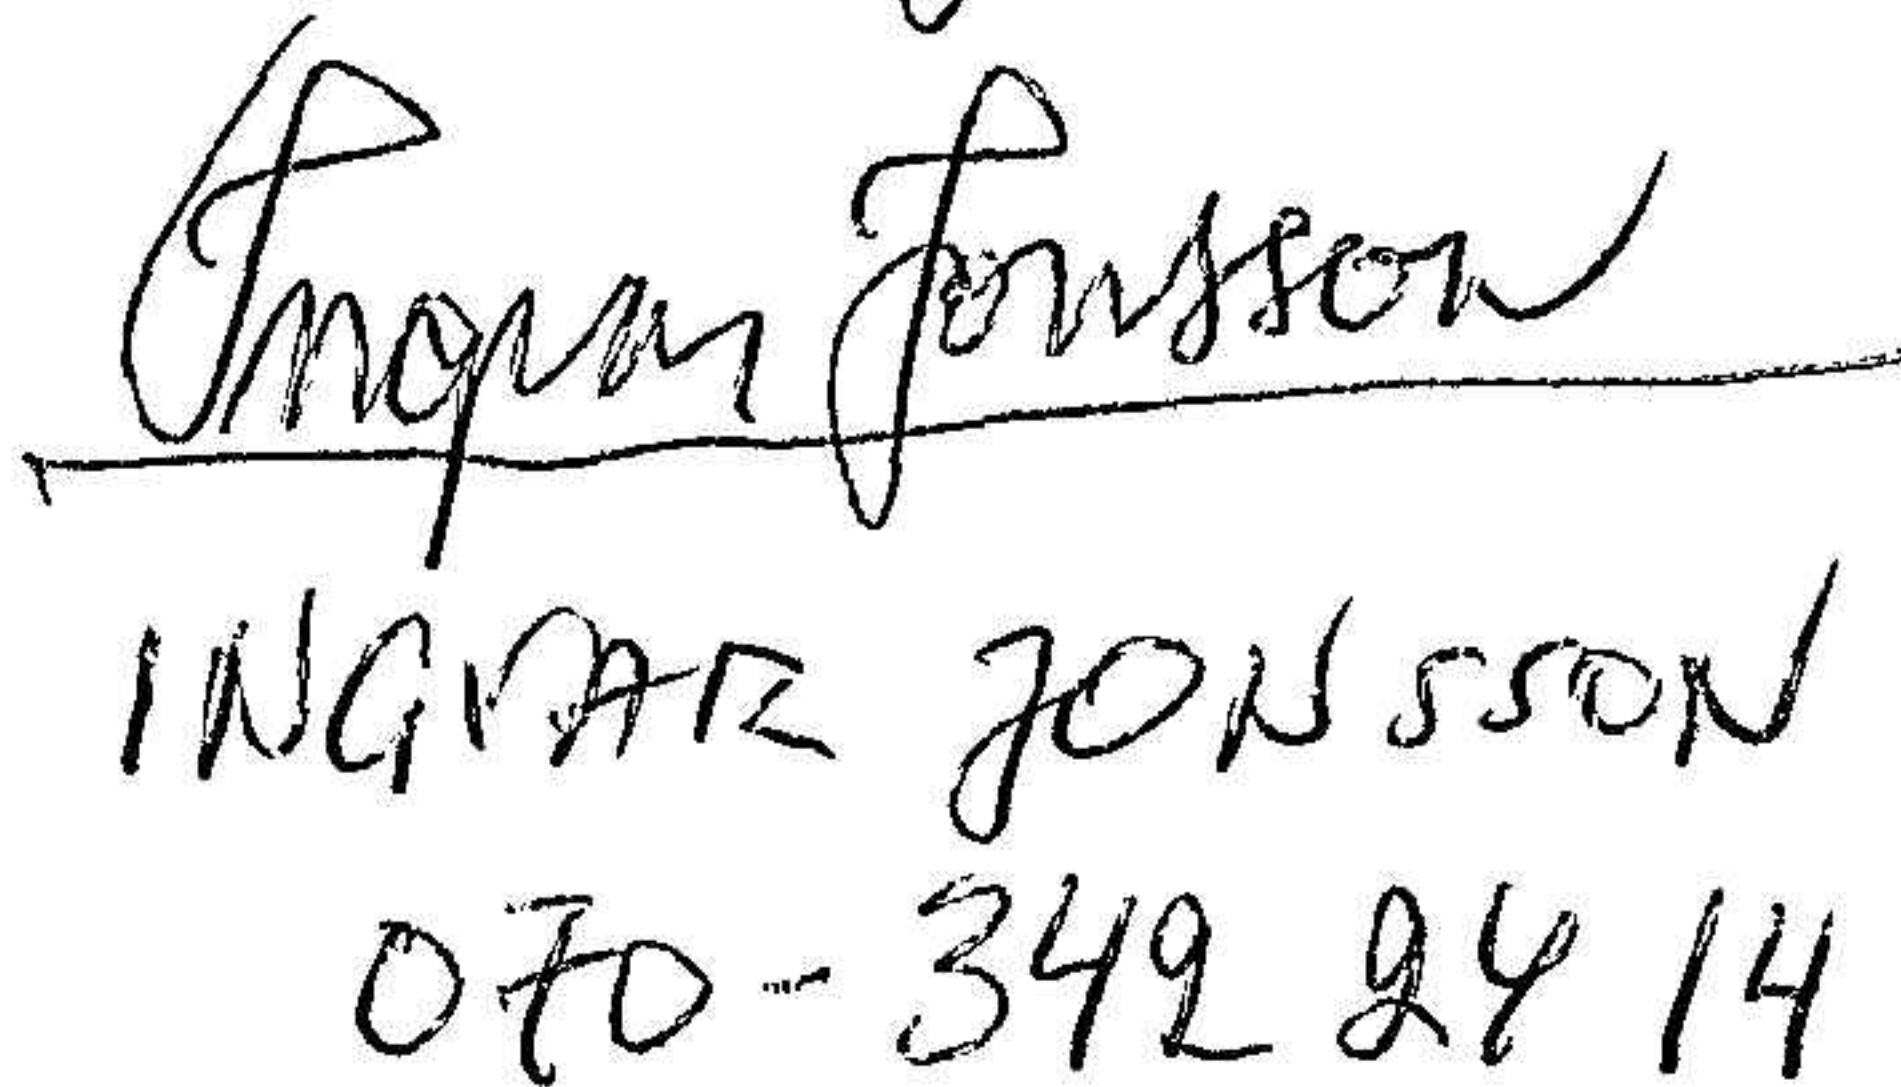 Ingvar Jonsson
INGVAR JONSSON
070-342 24 14